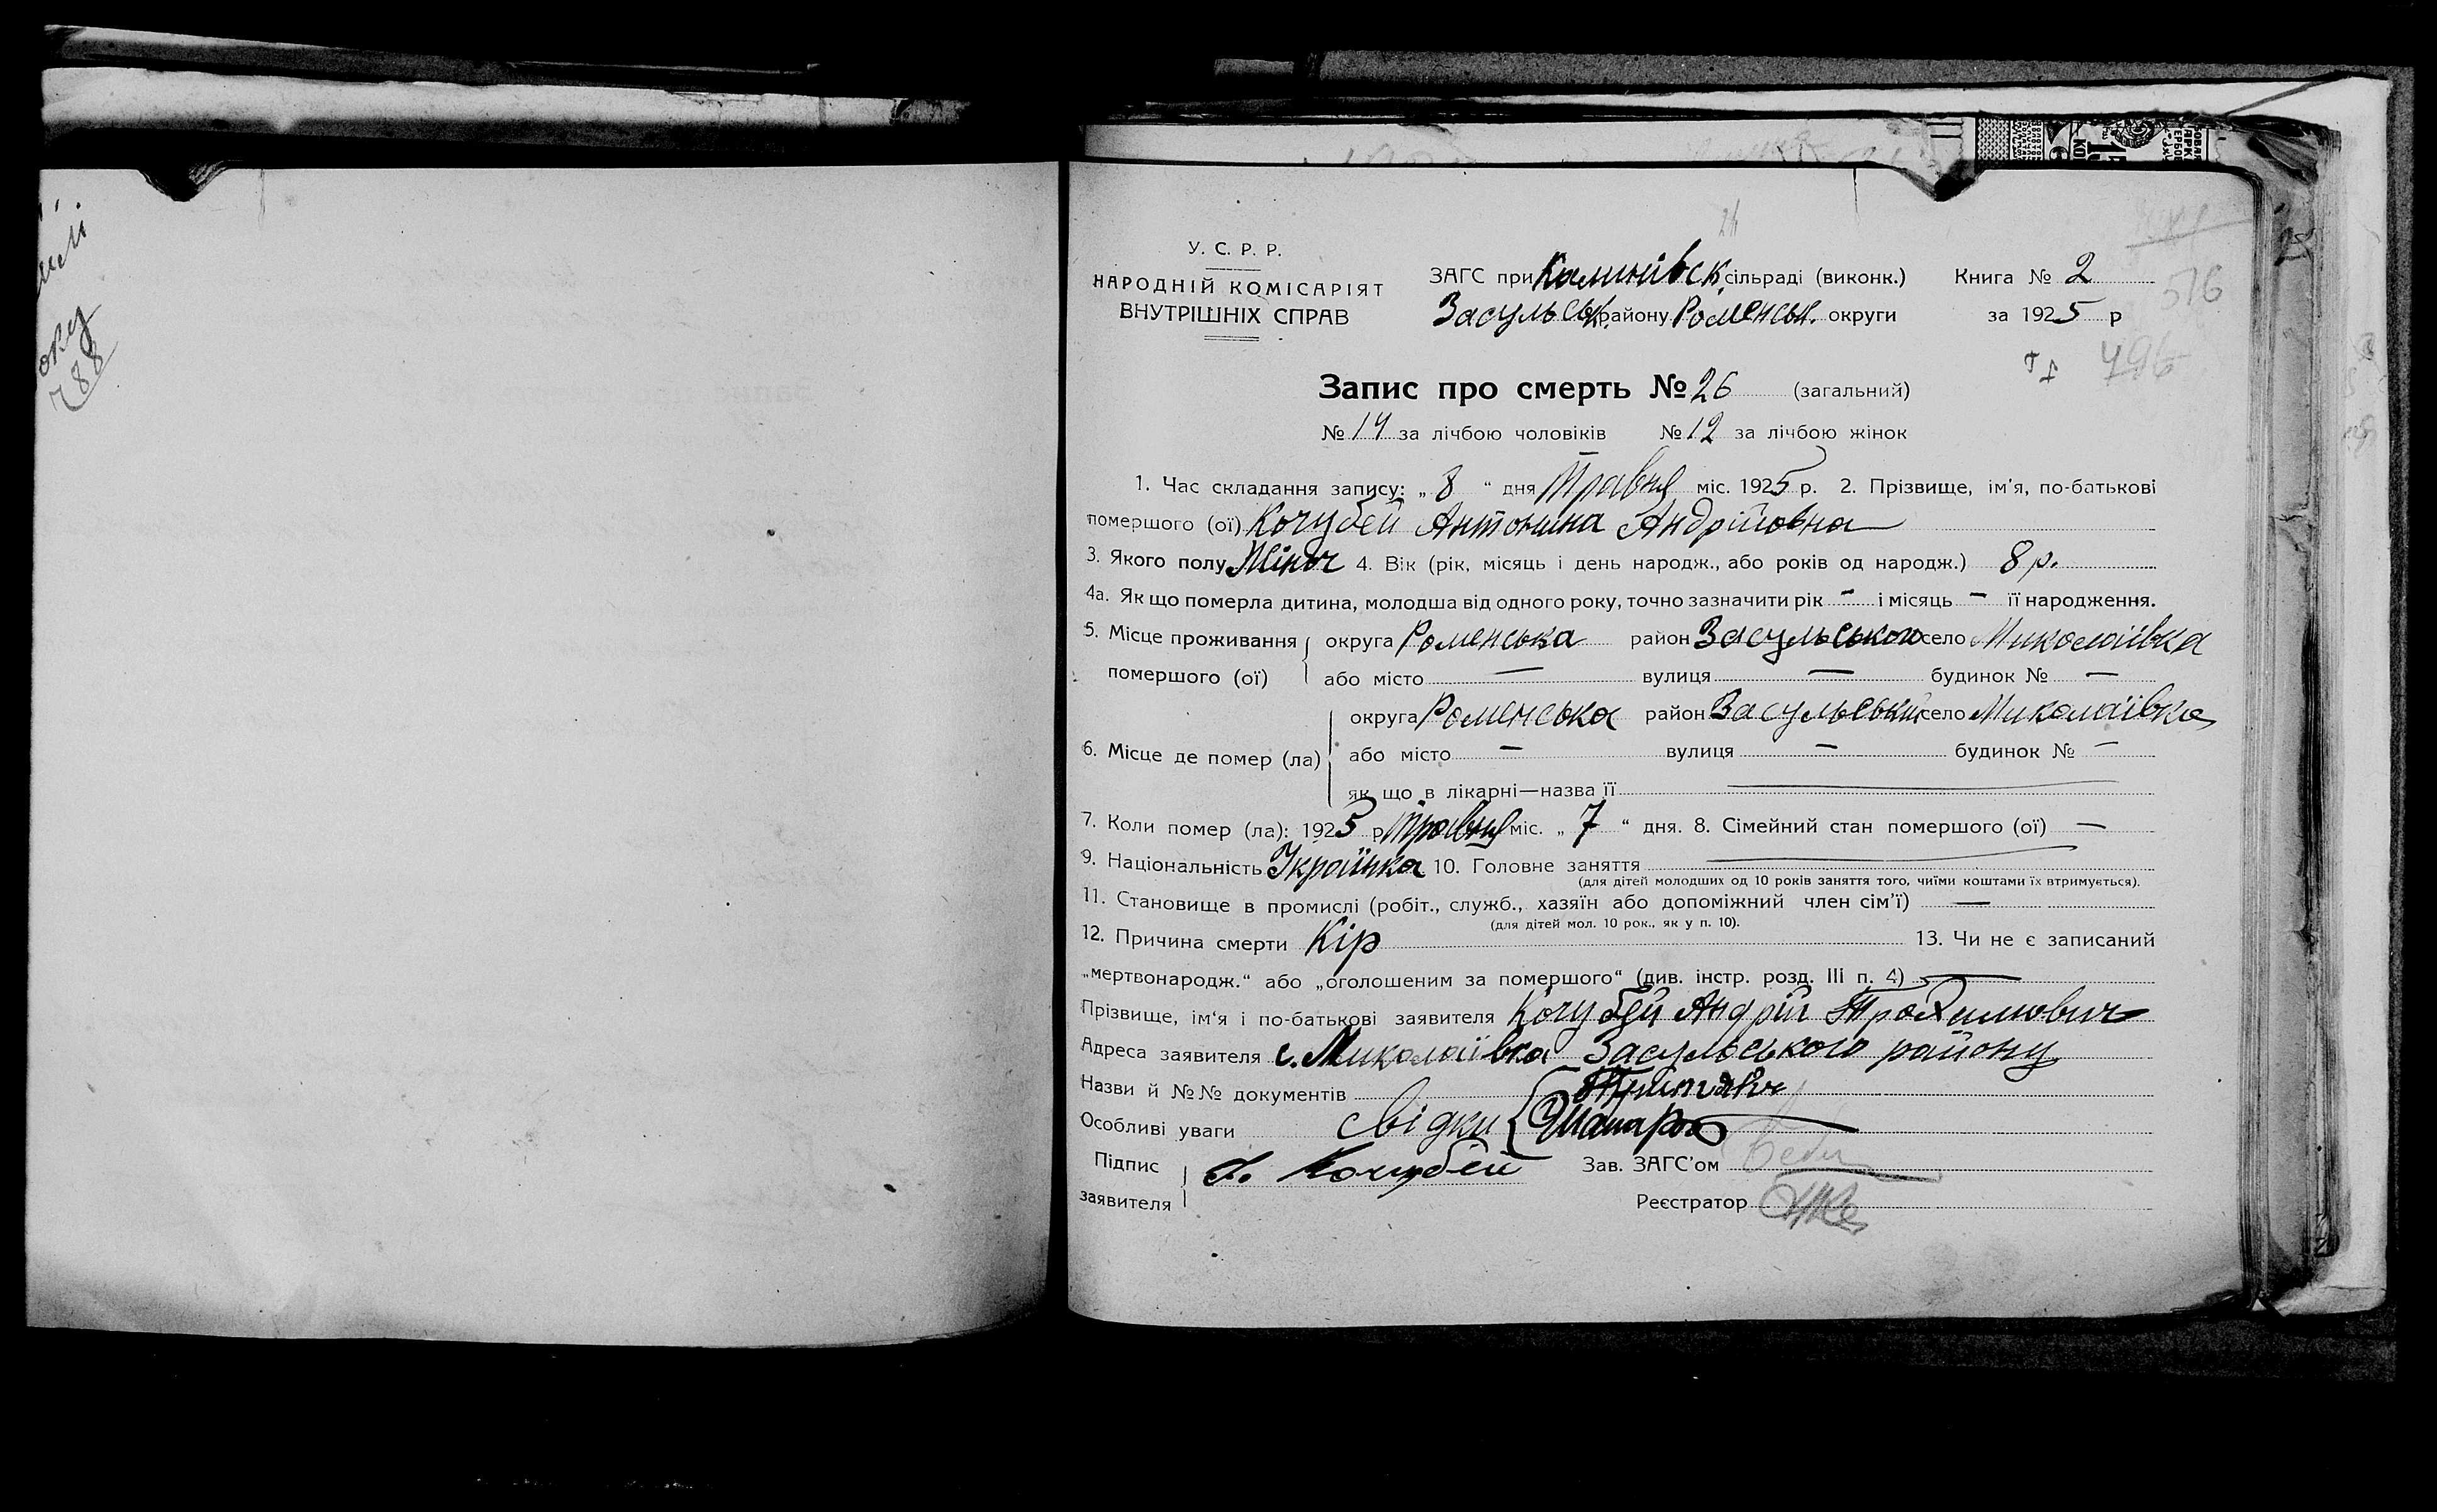 788
У. С. Р. Р.
НАРОДНІЙ КОМІСАРІЯТ
ВНУТРІШНІХ СПРАВ
ЗАГС при Калинівськ. сільраді (виконк.) Книга № 2
516
Засульськ. району Роменськ. округи за 1925 р
496
Запис про смерть № 26 (загальний)
№ 14 за лічбою чоловіків № 12 за лічбою жінок
1. Час складання запису: „ 8 “ дня Травня міс. 1925 р. 2. Прізвище, ім'я, по-батькові
помершого (ої) Кочубей Антонина Андрійовна
3. Якого полу Жіноч 4. Вік (рік, місяць і день народж., або років од народж.) 8 р.
4а. Як що померла дитина, молодша від одного року, точно зазначити рік – і місяць – її народження.
5. Місце проживання округа Роменська район Засульського село Миколаївка
помершого (ої) або місто — вулиця — будинок № —
округа Роменська район Засульський село Миколаївка
6. Місце де помер (ла) або місто — вулиця — будинок № —
як що в лікарні—назва її —
7. Коли помер (ла): 1925 р Травня міс. „ 7 “ дня. 8. Сімейний стан помершого (ої) —
9. Національність Українка 10. Головне заняття —
(для дітей молодших од 10 років заняття того, чиїми коштами їх втримується).
11. Становище в промислі (робіт., служб., хазяїн або допоміжний член сім'ї) —
(для дітей мол. 10 рок., як у п. 10).
12. Причина смерти Кір 13. Чи не є записаний
„мертвонародж.“ або „оголошеним за помершого“ (див. інстр. розд. III п. 4) —
Прізвище, ім'я і по-батькові заявителя Кочубей Андрій Трохимович
Адреса заявителя с. Миколаївка Засульського району
Назви й №№ документів
Особливі уваги свідки
Підпис заявителя А. Кочубей Зав. ЗАГС'ом
Реєстратор